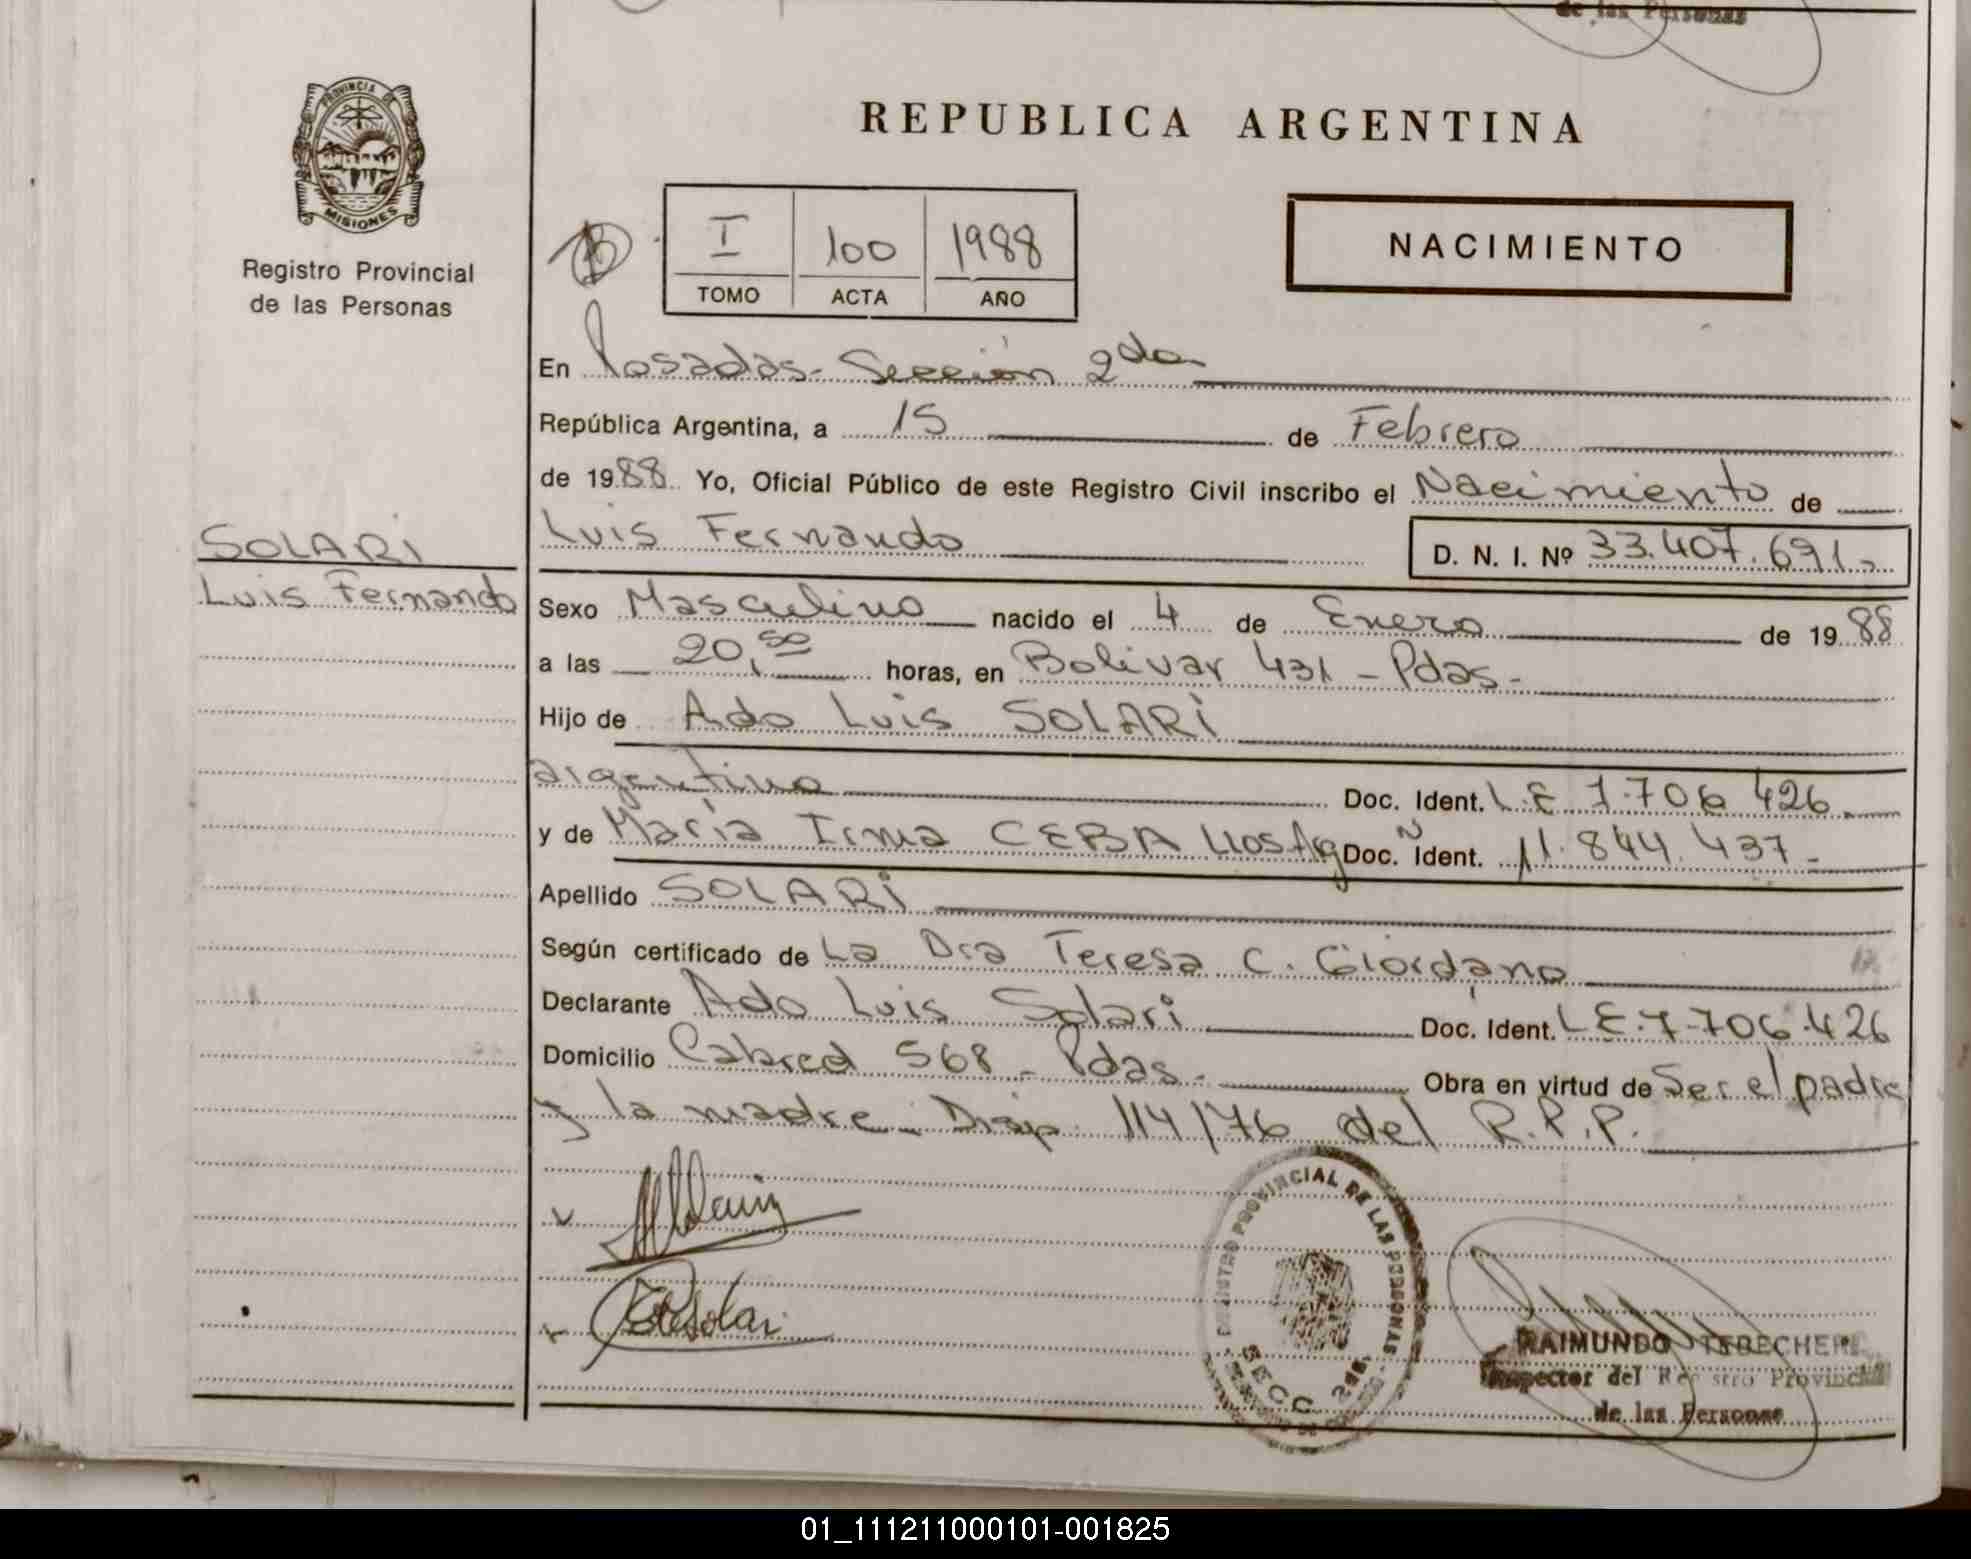 de las Personas
PROVINCIA DE
MISIONES
Registro Provincial
de las Personas
REPUBLICA ARGENTINA
I 100 1988
TOMO ACTA AÑO
NACIMIENTO
En Posadas - Sección 2da
República Argentina, a 15 de Febrero
de 1988 Yo, Oficial Público de este Registro Civil inscribo el Nacimiento de
Luis Fernando D. N. I. Nº 33.407.691-
SOLARI
Luis Fernando
Sexo Masculino nacido el 4 de Enero de 1988
a las 20,50 horas, en Bolivar 431 - Pdas -
Hijo de Ado Luis SOLARI
argentino Doc. Ident. L.E 7.706 426
y de María Irma CEBALLOS Arg Doc. Ident. 11.844.437-
Apellido SOLARI
Según certificado de La Dra Teresa C. Giordano
Declarante Ado Luis Solari Doc. Ident. L E. 7-706.426
Domicilio Cabred 568 - Pdas - Obra en virtud de Ser el padre
y la madre - Disp 114/76 del R.P.P.
REGISTRO PROVINCIAL DE LAS PERSONAS
SECC.
RAIMUNDO TEBECHERI
Inspector del Registro Provincial
de las Personas
01_111211000101-001825